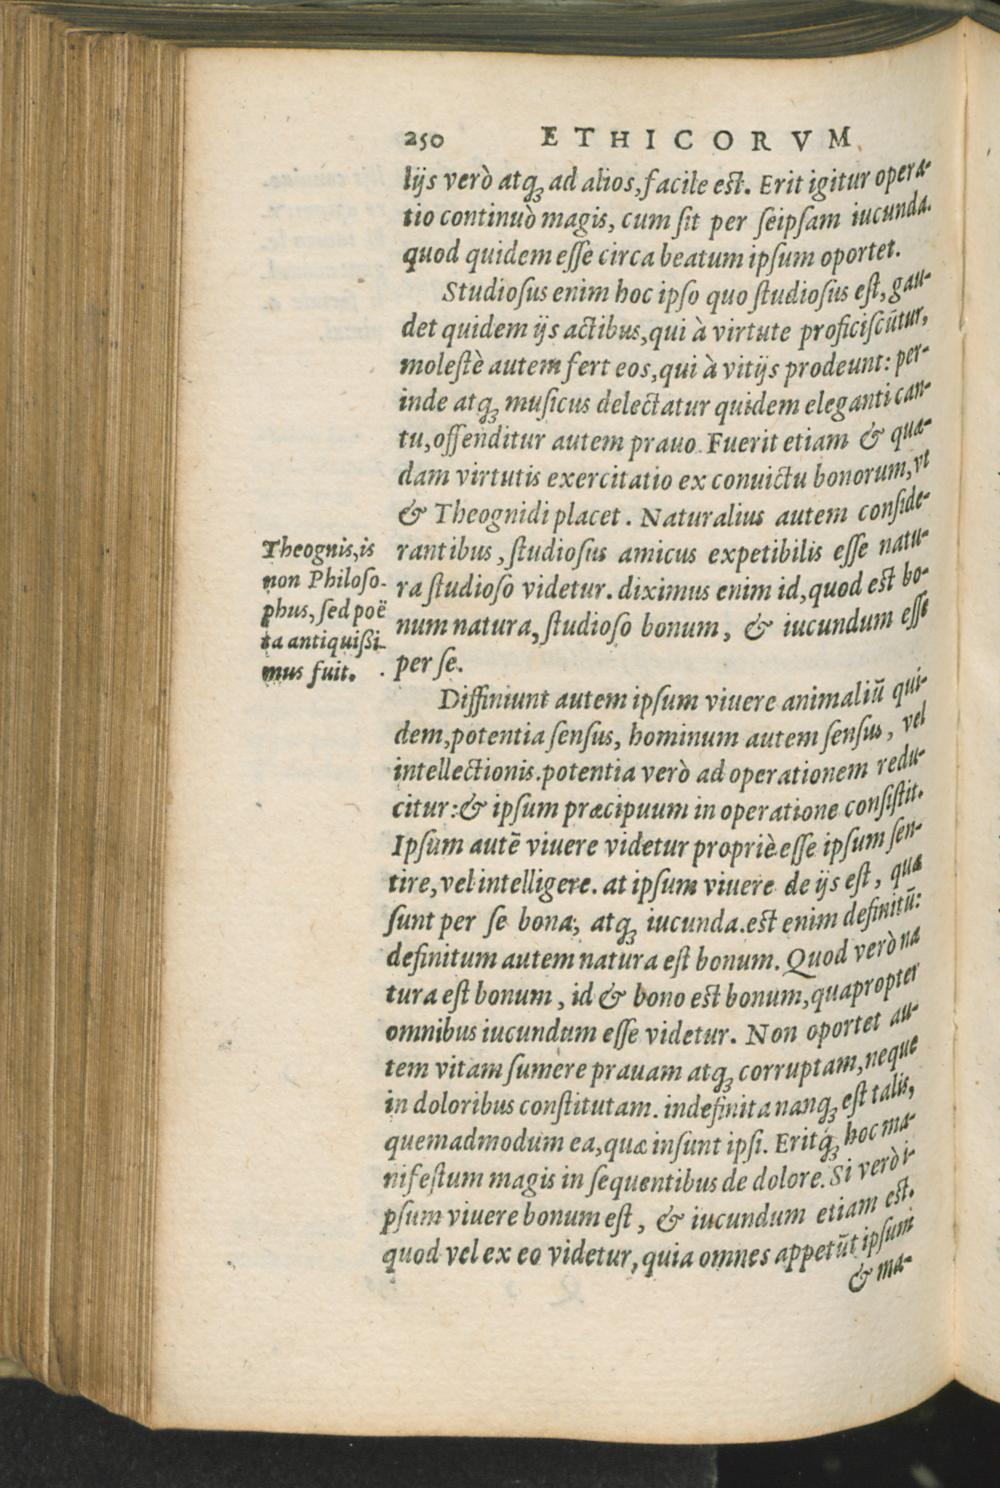 250 ETHICORVM
lijs verò atq; ad alios, facile est. Erit igitur opera-
tio continuò magis, cum sit per seipsam iucunda.
quod quidem esse circa beatum ipsum oportet.
Studiosus enim hoc ipso quo studiosus est, gau-
det quidem ijs actibus, qui à virtute proficiscūtur,
molestè autem fert eos, qui à vitijs prodeunt: per-
inde atq; musicus delectatur quidem eleganti can-
tu, offenditur autem prauo. Fuerit etiam & quæ-
dam virtutis exercitatio ex conuictu bonorum, vt
& Theognidi placet. Naturalius autem conside-
rantibus, studiosus amicus expetibilis esse natu-
ra studioso videtur. diximus enim id, quod est bo-
num natura, studioso bonum, & iucundum esse
per se.
Theognis, is
non Philoso-
phus, sed poë
ta antiquißi-
mus fuit.
Diffiniunt autem ipsum viuere animaliū qui-
dem, potentia sensus, hominum autem sensus, vel
intellectionis. potentia verò ad operationem redu-
citur: & ipsum præcipuum in operatione consistit.
Ipsum autē viuere videtur propriè esse ipsum sen-
tire, vel intelligere. at ipsum viuere de ijs est, quæ
sunt per se bona; atq; iucunda. est enim definitū:
definitum autem natura est bonum. Quod verò na
tura est bonum, id & bono est bonum, quapropter
omnibus iucundum esse videtur. Non oportet au-
tem vitam sumere prauam atq; corruptam, neque
in doloribus constitutam. indefinita nanq; est talis,
quemadmodum ea, quæ insunt ipsi. Eritq́; hoc ma-
nifestum magis in sequentibus de dolore. Si verò i-
psum viuere bonum est, & iucundum etiam est.
quod vel ex eo videtur, quia omnes appetūt ipsum
& ma-